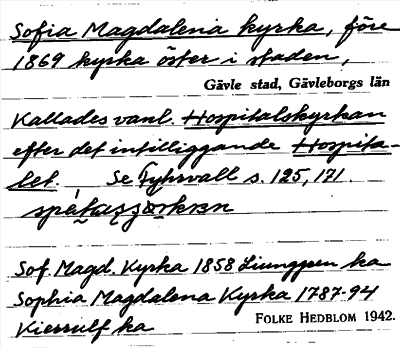 Sofia Magdalena kyrka, före
1869 kyrka öster i staden,
Gävle stad, Gävleborgs län
Kallades vanl. Hospitalskyrkan
efter det intilliggande Hospita-
let. Se Fyhrvall s. 125, 171.
Sof. Magd. Kyrka 1858 Ljunggren ka
Sophia Magdalena Kyrka 1787-94
Kierrulf ka
FOLKE HEDBLOM 1942.